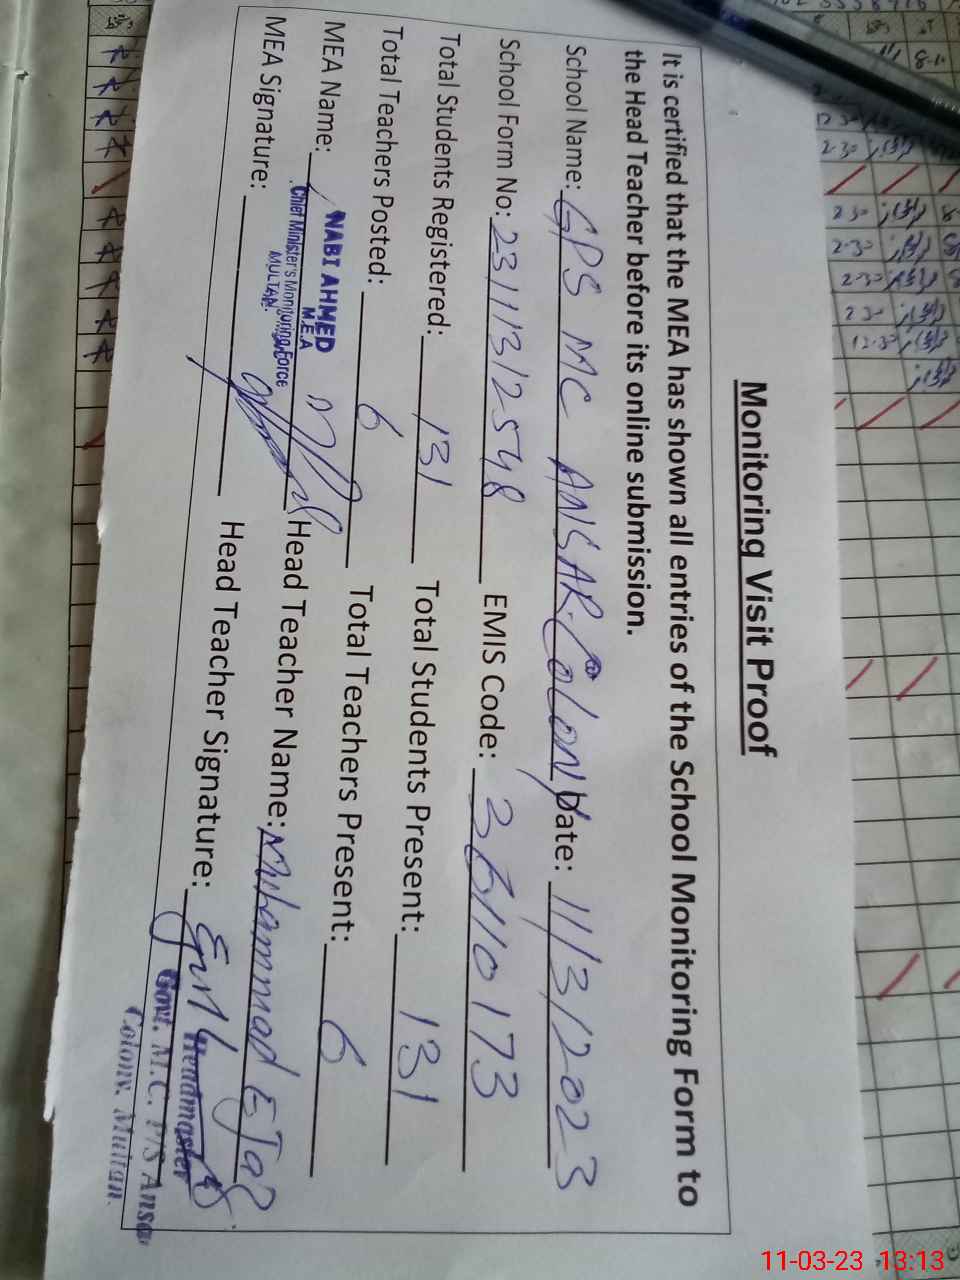 Monitoring Visit Proof
It is certified that the MEA has shown all entries of the School Monitoring Form to
the Head Teacher before its online submission.
School Name: GPS MC ANSAR Colony Date: 11/3/2023
School Form No: 23111312548 EMIS Code: 36110173
Total Students Registered: 131 Total Students Present: 131
Total Teachers Posted: 6 Total Teachers Present: 6
MEA Name: NABI AHMED Head Teacher Name: Muhammad EJaz
M.E.A
Chief Minister's Monitoring Force
MULTAN.
MEA Signature: Head Teacher Signature:
Headmaster
Govt. M.C. P/S Ansar
Colony, Multan.
11-03-23 13:13